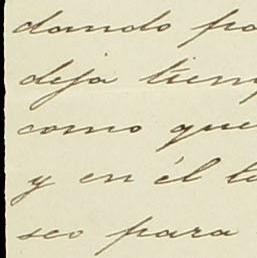 dando pa
deja tiemp
como que
y en él ta
seo para